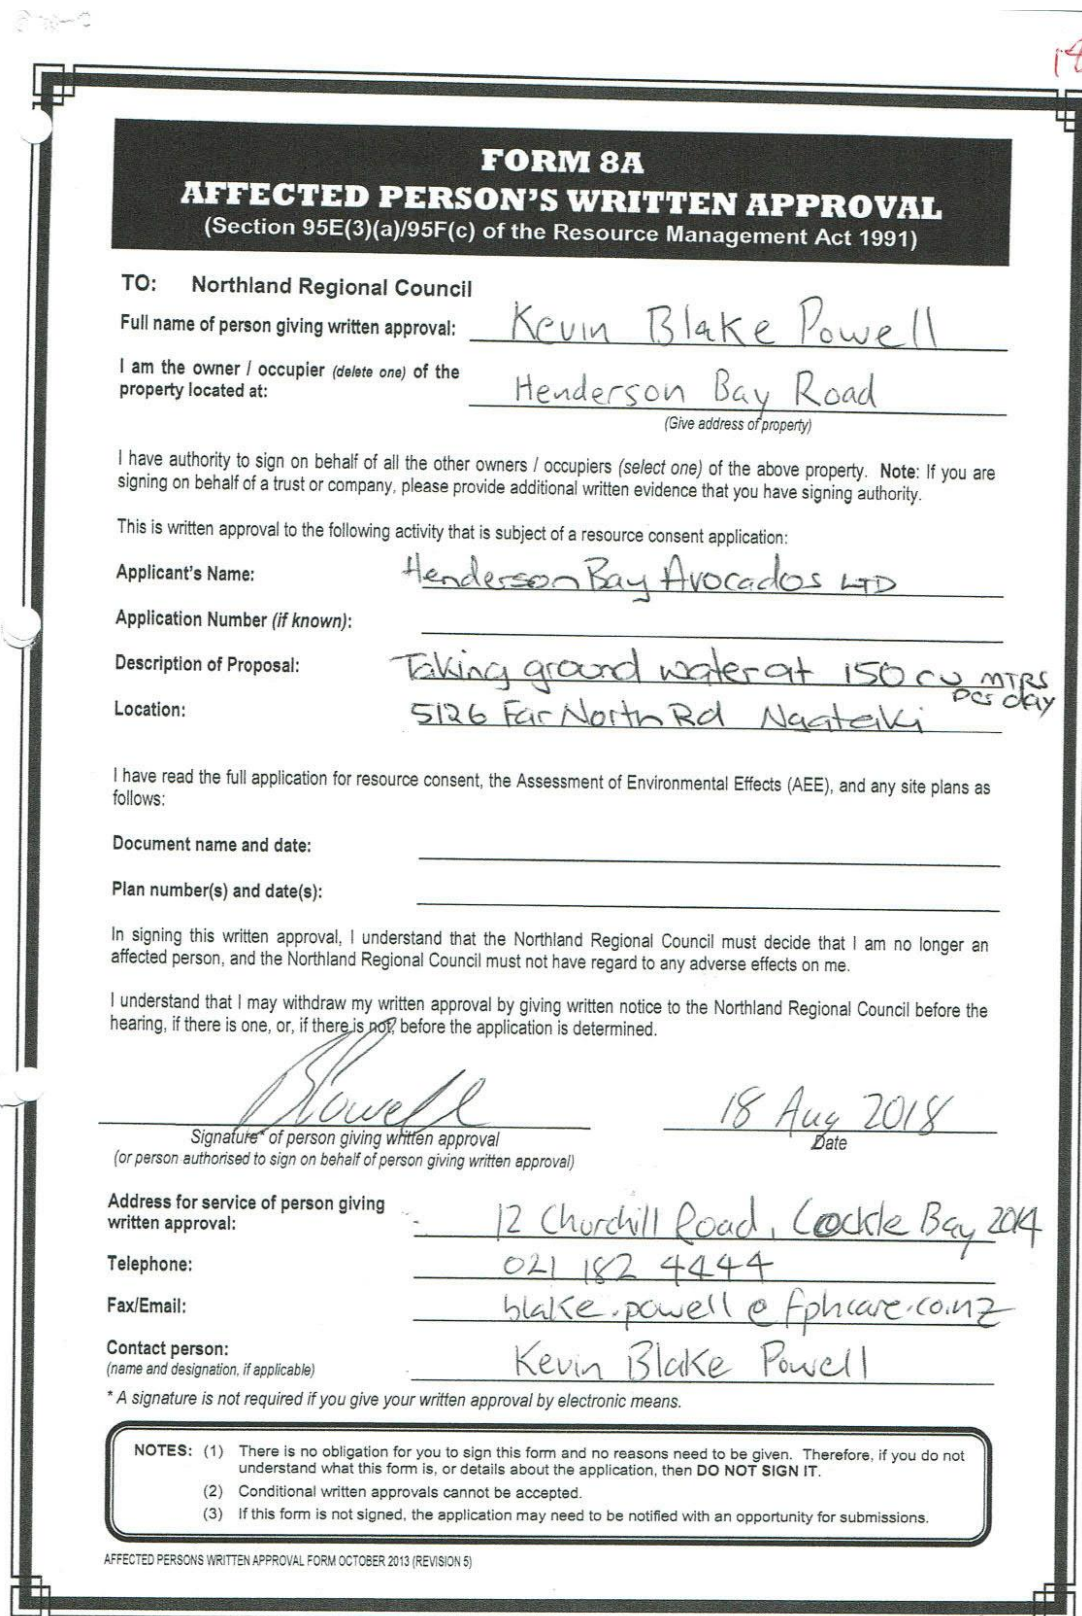 FORM 8A
AFFECTED PERSON'S WRITTEN APPROVAL
(Section 95E(3)(a)/95F(c) of the Resource Management Act 1991)
TO: Northland Regional Council
Full name of person giving written approval: Kevin Blake Powell
I am the owner / occupier (delete one) of the
property located at: Henderson Bay Road
(Give address of property)
I have authority to sign on behalf of all the other owners / occupiers (select one) of the above property. Note: If you are
signing on behalf of a trust or company, please provide additional written evidence that you have signing authority.
This is written approval to the following activity that is subject of a resource consent application:
Applicant's Name: Henderson Bay Avocados LTD
Application Number (if known):
Description of Proposal: Taking ground water at 150 cu MTRS
per day
Location: 5126 Far North Rd Ngataki
I have read the full application for resource consent, the Assessment of Environmental Effects (AEE), and any site plans as
follows:
Document name and date:
Plan number(s) and date(s):
In signing this written approval, I understand that the Northland Regional Council must decide that I am no longer an
affected person, and the Northland Regional Council must not have regard to any adverse effects on me.
I understand that I may withdraw my written approval by giving written notice to the Northland Regional Council before the
hearing, if there is one, or, if there is not, before the application is determined.
BPowell 18 Aug 2018
Signature* of person giving written approval Date
(or person authorised to sign on behalf of person giving written approval)
Address for service of person giving
written approval: 12 Churchill Road, Cockle Bay 2014
Telephone: 021 182 4444
Fax/Email: blake.powell@fphcare.co.nz
Contact person: Kevin Blake Powell
(name and designation, if applicable)
* A signature is not required if you give your written approval by electronic means.
NOTES: (1) There is no obligation for you to sign this form and no reasons need to be given. Therefore, if you do not
understand what this form is, or details about the application, then DO NOT SIGN IT.
(2) Conditional written approvals cannot be accepted.
(3) If this form is not signed, the application may need to be notified with an opportunity for submissions.
AFFECTED PERSONS WRITTEN APPROVAL FORM OCTOBER 2013 (REVISION 5)